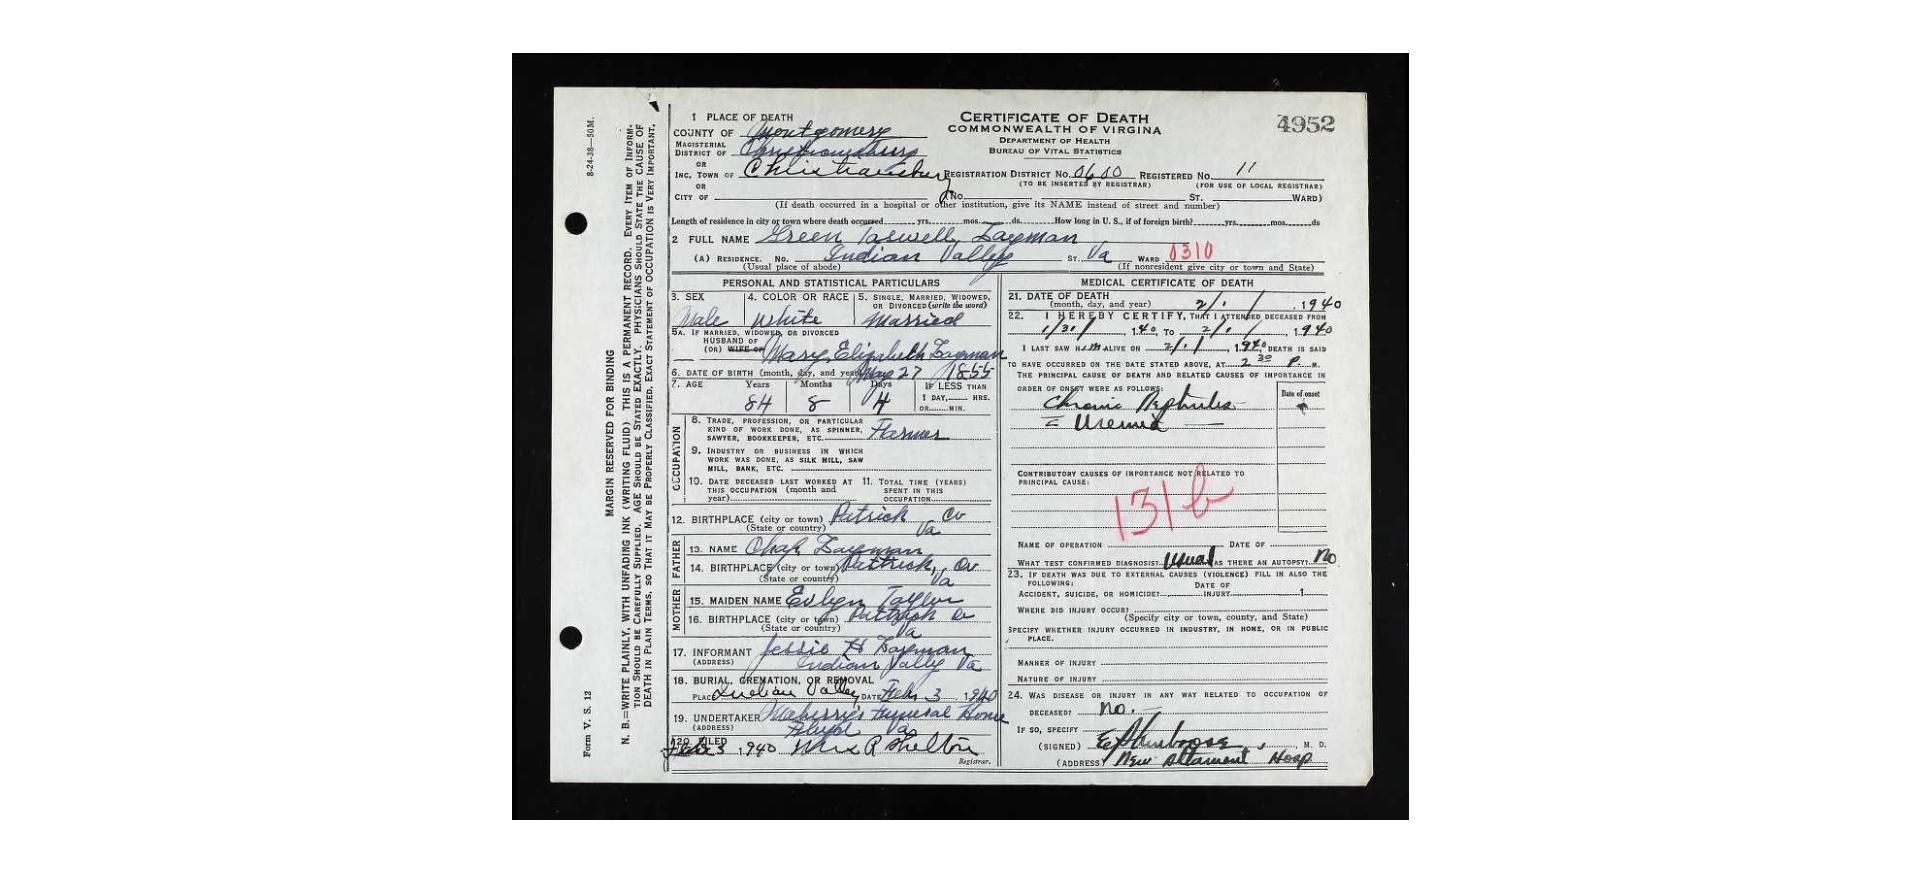 8-24-38—50M.
MARGIN RESERVED FOR BINDING
N. B.—WRITE PLAINLY, WITH UNFADING INK (WRITING FLUID) THIS IS A PERMANENT RECORD. EVERY ITEM OF INFORM-
TION SHOULD BE CAREFULLY SUPPLIED. AGE SHOULD BE STATED EXACTLY. PHYSICIANS SHOULD STATE THE CAUSE OF
DEATH IN PLAIN TERMS, SO THAT IT MAY BE PROPERLY CLASSIFIED. EXACT STATEMENT OF OCCUPATION IS VERY IMPORTANT.
Form V. S. 12
CERTIFICATE OF DEATH
COMMONWEALTH OF VIRGINA
DEPARTMENT OF HEALTH
BUREAU OF VITAL STATISTICS
4952
1 PLACE OF DEATH
COUNTY OF Montgomery
MAGISTERIAL DISTRICT OF Christiansburg
OR
INC. TOWN OF Christiansburg REGISTRATION DISTRICT NO. 0600 REGISTERED NO. 11
OR (TO BE INSERTED BY REGISTRAR) (FOR USE OF LOCAL REGISTRAR)
CITY OF (No. ST. WARD)
(If death occurred in a hospital or other institution, give its NAME instead of street and number)
Length of residence in city or town where death occurred yrs. mos. ds. How long in U. S., if of foreign birth? yrs. mos. ds
2 FULL NAME Green Taswell Layman
(A) RESIDENCE. No. Indian Valley ST. Va WARD 0310
(Usual place of abode) (If nonresident give city or town and State)
PERSONAL AND STATISTICAL PARTICULARS
3. SEX Male
4. COLOR OR RACE White
5. SINGLE, MARRIED, WIDOWED, OR DIVORCED (write the word) Married
5A. IF MARRIED, WIDOWED, OR DIVORCED
HUSBAND OF
(OR) WIFE OF Mary Elizabeth Layman
6. DATE OF BIRTH (month, day, and year) May 27 1855
7. AGE Years Months Days IF LESS THAN
84 8 4 1 DAY, HRS.
OR MIN.
OCCUPATION
8. TRADE, PROFESSION, OR PARTICULAR
KIND OF WORK DONE, AS SPINNER,
SAWYER, BOOKKEEPER, ETC. Farmer
9. INDUSTRY OR BUSINESS IN WHICH
WORK WAS DONE, AS SILK MILL, SAW
MILL, BANK, ETC.
10. DATE DECEASED LAST WORKED AT
THIS OCCUPATION (month and
year)
11. TOTAL TIME (YEARS)
SPENT IN THIS
OCCUPATION
12. BIRTHPLACE (city or town) Patrick Co
(State or country) Va
FATHER
13. NAME Chas Layman
14. BIRTHPLACE (city or town) Pattrick, Co
(State or country) Va
MOTHER
15. MAIDEN NAME Evlyn Taylor
16. BIRTHPLACE (city or town) Pattrick Co
(State or country) Va
17. INFORMANT Jessie H Layman
(ADDRESS) Indian Valley Va
18. BURIAL, CREMATION, OR REMOVAL
PLACE Indian Valley DATE Feb. 3, 1940
19. UNDERTAKER Funeral Home
(ADDRESS) Floyd Va
20. FILED Feb 3 1940 Mrs R Shelton
Registrar.
MEDICAL CERTIFICATE OF DEATH
21. DATE OF DEATH
(month, day, and year) 2/1/, 1940
22. I HEREBY CERTIFY, THAT I ATTENDED DECEASED FROM
1/31/, 1940, TO 2/1/, 1940
I LAST SAW HIM ALIVE ON 2/1/, 1940 DEATH IS SAID
TO HAVE OCCURRED ON THE DATE STATED ABOVE, AT 2 30 P. M.
THE PRINCIPAL CAUSE OF DEATH AND RELATED CAUSES OF IMPORTANCE IN
ORDER OF ONSET WERE AS FOLLOWS:
Date of onset
Chronic Nephritis
= Uremia
CONTRIBUTORY CAUSES OF IMPORTANCE NOT RELATED TO
PRINCIPAL CAUSE:
131b
NAME OF OPERATION DATE OF
WHAT TEST CONFIRMED DIAGNOSIS? Usual WAS THERE AN AUTOPSY? No
23. IF DEATH WAS DUE TO EXTERNAL CAUSES (VIOLENCE) FILL IN ALSO THE
FOLLOWING:
ACCIDENT, SUICIDE, OR HOMICIDE? DATE OF INJURY 1
WHERE DID INJURY OCCUR?
(Specify city or town, county, and State)
SPECIFY WHETHER INJURY OCCURRED IN INDUSTRY, IN HOME, OR IN PUBLIC
PLACE.
MANNER OF INJURY
NATURE OF INJURY
24. WAS DISEASE OR INJURY IN ANY WAY RELATED TO OCCUPATION OF
DECEASED? No.
IF SO, SPECIFY
(SIGNED) M. D.
(ADDRESS) New Altamont Hosp